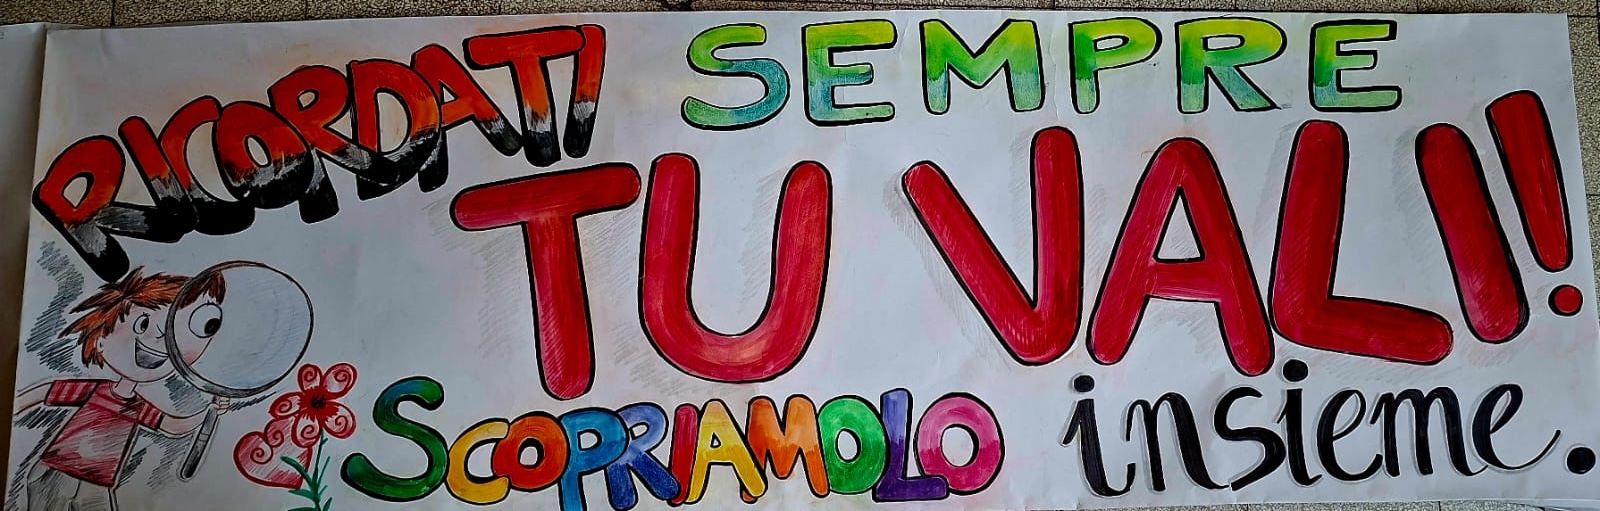 RICORDATI SEMPRE
TU VALI!
SCOPRIAMOLO insieme.